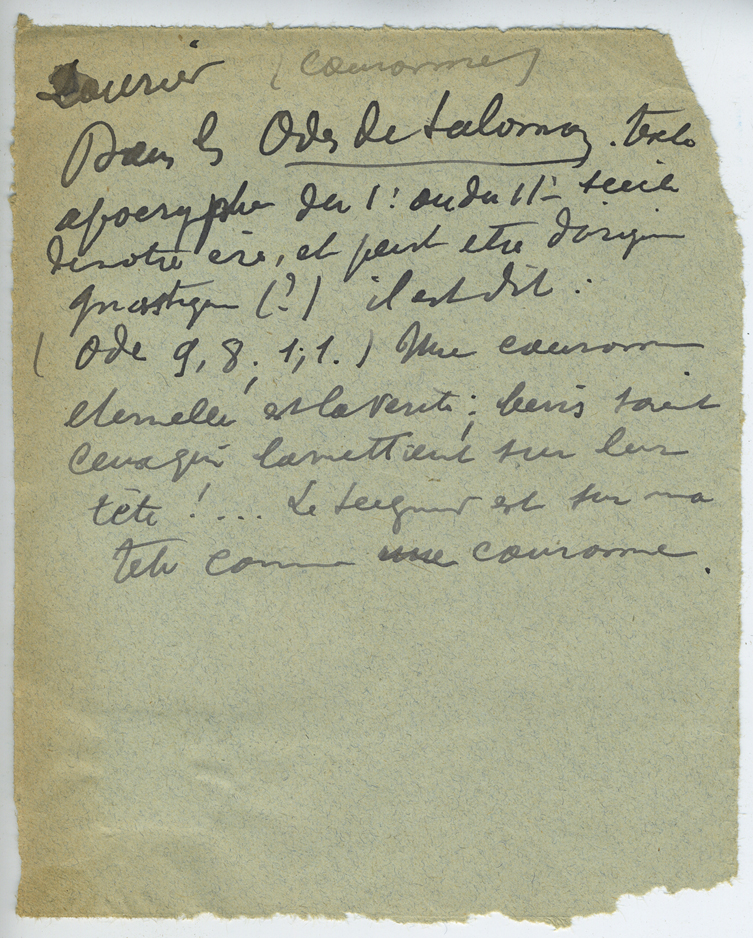 Laurier (couronne)
Dans les Odes de Salomon, texte
apocryphe du I: ou du II: siècle
de notre ère, et peut être d'origine
gnostique (?) il est dit :
( Ode 9, 8, 1, 1. ) Une couronne
eternelle est la verité ; benis soient
ceux qui la mettent sur leur
tête ! ... Le Seigneur est sur ma
tête comme une couronne.